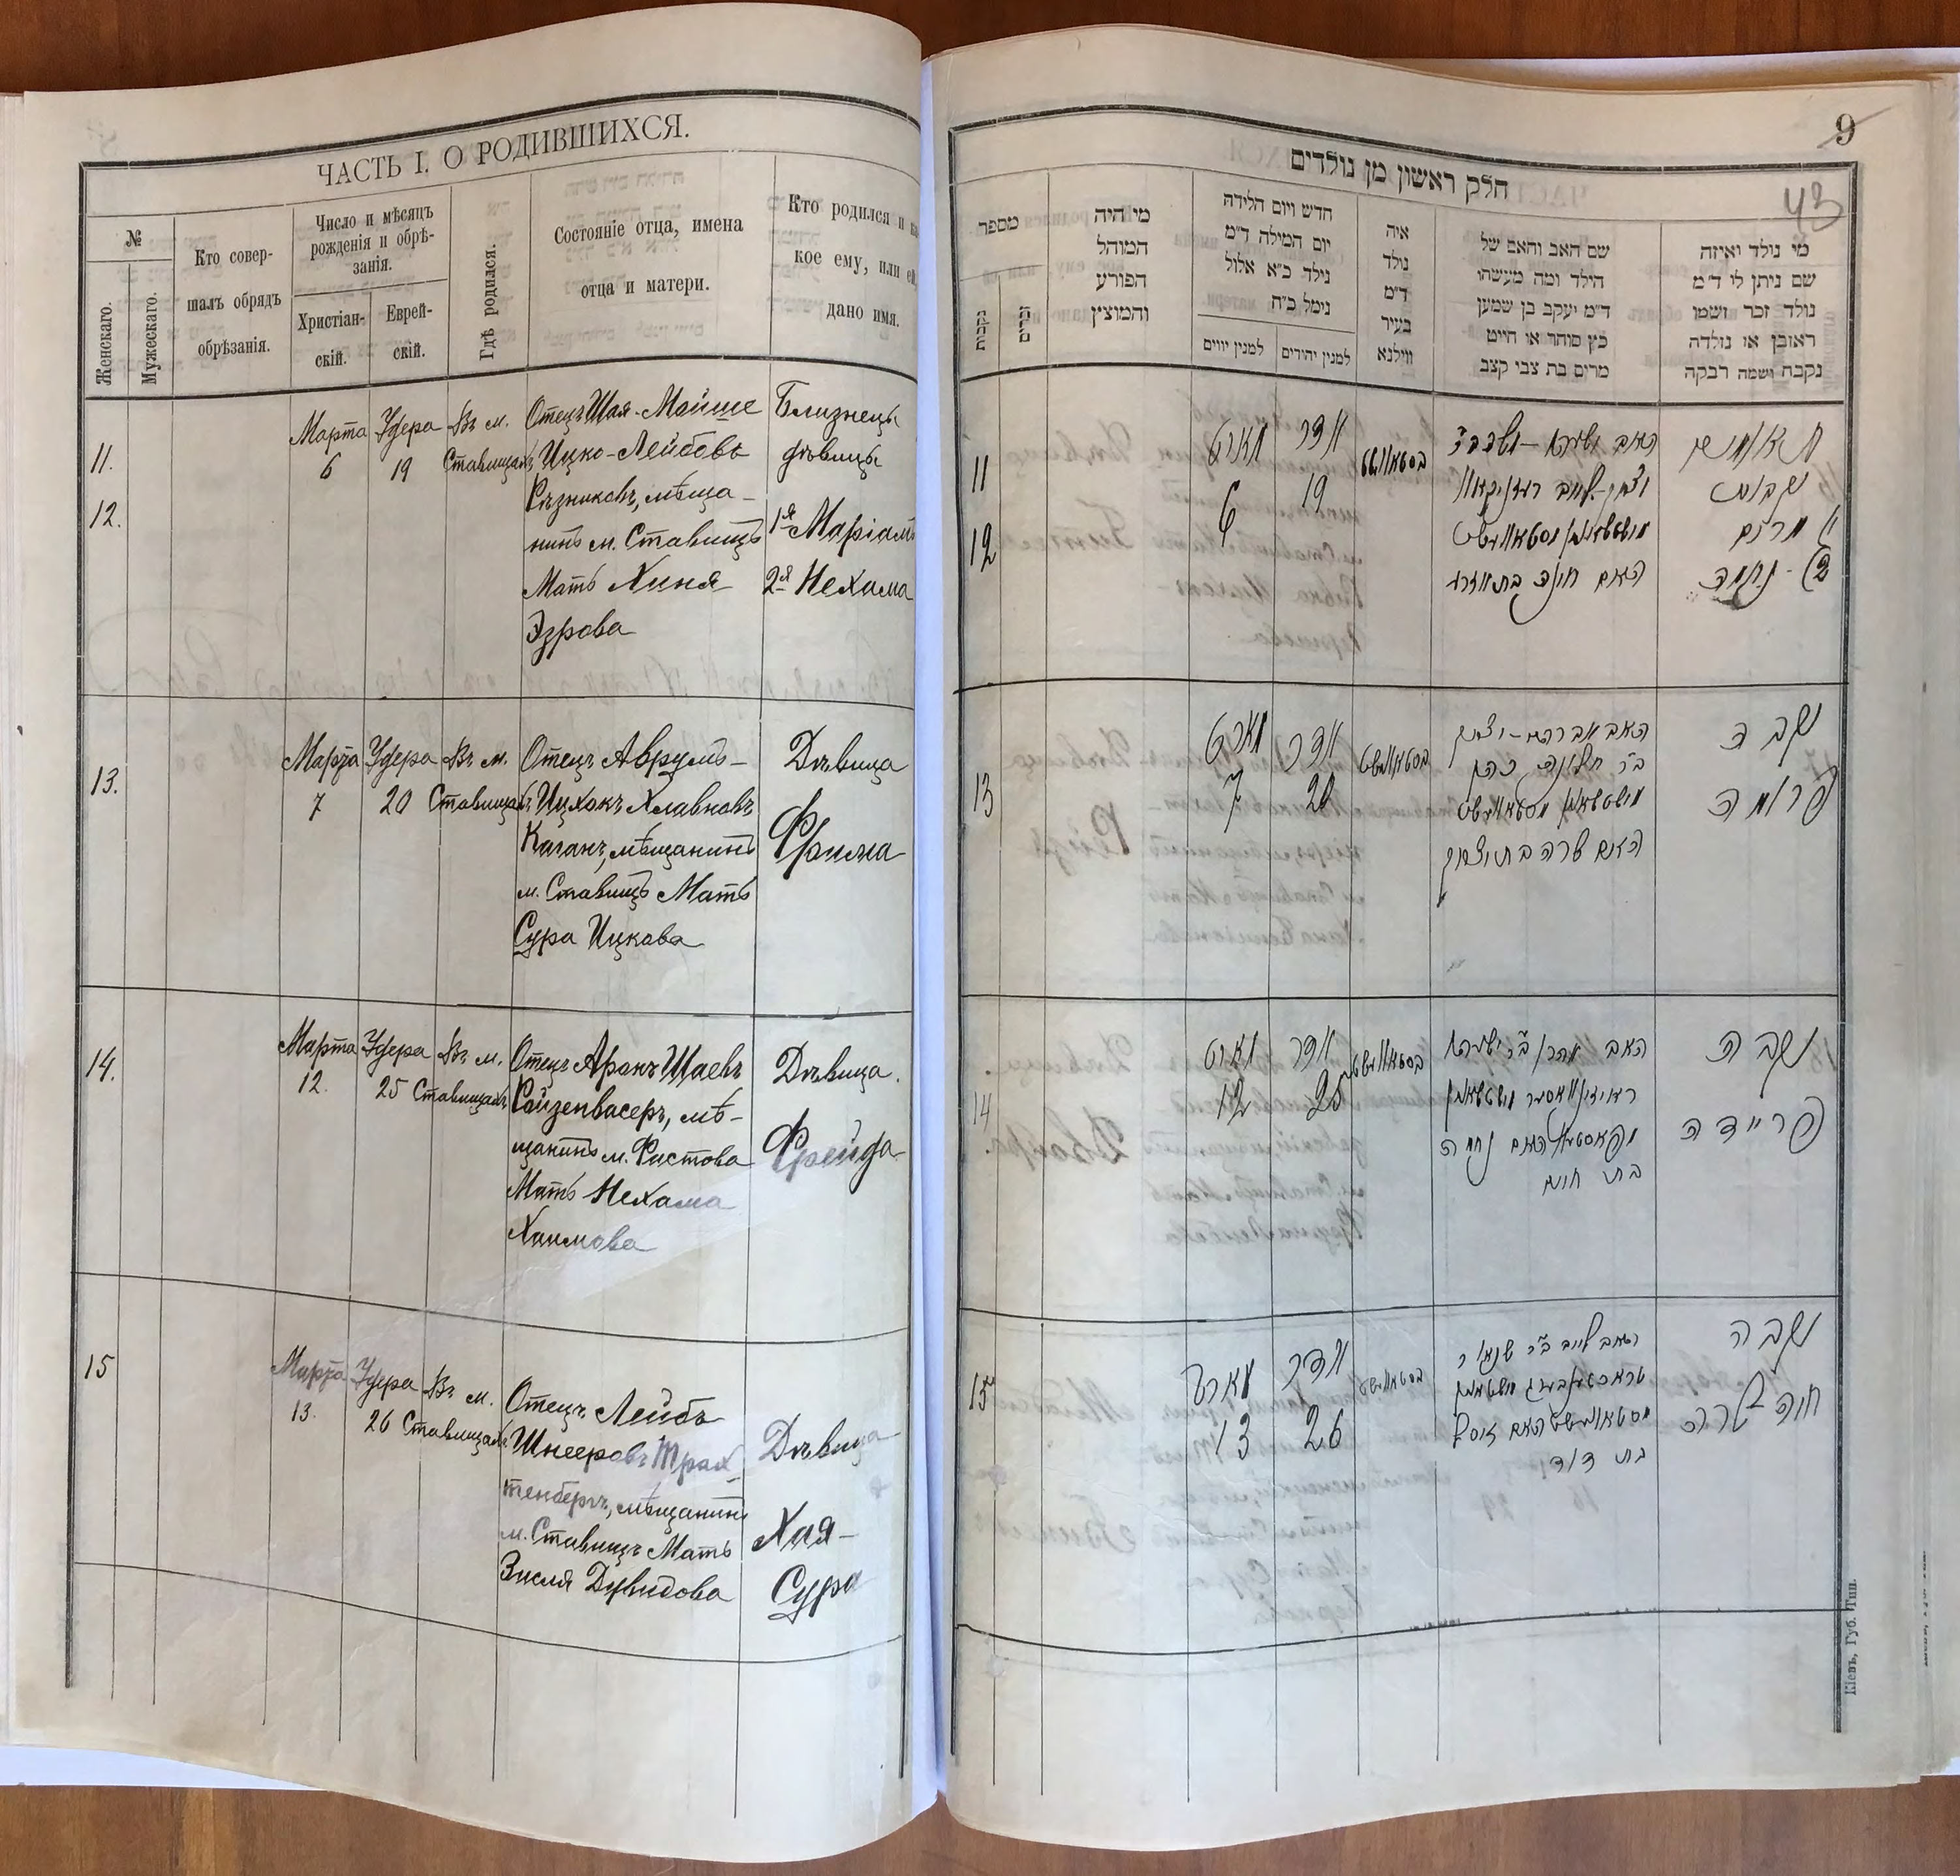 ЧАСТЬ I. О РОДИВШИХСЯ.
№
Женскаго.
Мужескаго.
Кто совер-
шалъ обрядъ
обрѣзанія.
Число и мѣсяцъ
рожденія и обрѣ-
занія.
Христіан-
скій.
Еврей-
скій.
Гдѣ родился.
Состояніе отца, имена
отца и матери.
Кто родился и ка
кое ему, или ей
дано имя.
11.
12.
Марта
6
Удера
19
Въ м.
Ставищахъ
Отецъ Шая-Мойше
Ицко-Лейбовъ
Рѣзниковъ, мѣща-
нинъ м. Ставищъ
Мать Хиня
Эзрова
Близнецы
дѣвицы
1я Маріамъ
2я Нехама
13.
Марта
7
Удера
20
Въ м.
Ставищахъ
Отецъ Аврумъ-
Ицхокъ Хлавновъ
Каганъ, мѣщанинъ
м. Ставищъ Мать
Сура Ицкова
Дѣвица
Фрима
14.
Марта
12.
Удера
25
Въ м.
Ставищахъ
Отецъ Аронъ Шаевъ
Ройзенвасеръ, мѣ-
щанинъ м. Фастова
Мать Нехама
Хаимова
Дѣвица.
Фрейда
15
Марта
13.
Удера
26
Въ м.
Ставищахъ
Отецъ Лейбъ
Шнееровъ Трах
тенбергъ, мѣщанинъ
м. Ставищъ Мать
Зисля Дувидова
Дѣвица
Хая-
Сура
9
43
חלק ראשון מן נולדים
מי נולד ואיזה
שם ניתן לי ד״מ
נולד זכר ושמו
ראובן או נולדה
נקבה ושמה רבקה
שם האב והאם של
הילד ומה מעשהו
ד״מ יעקב בן שמעון
כץ סוחר או חייט
מרים בת צבי קצב
איה
נולד
ד״מ
בעיר
ווילנא
חדש ויום הלידה
יום המילה ד״מ
נילד כ״א אלול
נימל כ״ח
למנין יהודים
למנין יווים
מי היה
המוהל
הפורע
והמוצץ
מספר
זכרים
נקבות
תאומים
נקבות
מרים
2) נחמה
האם חינה בת עזרא
אדר
19
מארט
6
11
12
נקבה
פרומה
האב אברהם-יצחק
האם שרה בת יצחק
אדר
20
מארט
7
13
נקבה
פריידה
האב אהרן ב״ר ישעיה
בת חיים
אדר
25
מארט
12
14
נקבה
חוה שרה
האב לייב ב״ר שניאור
בת דוד
אדר
26
מארט
13
15
Кіевъ, Губ. Тип.